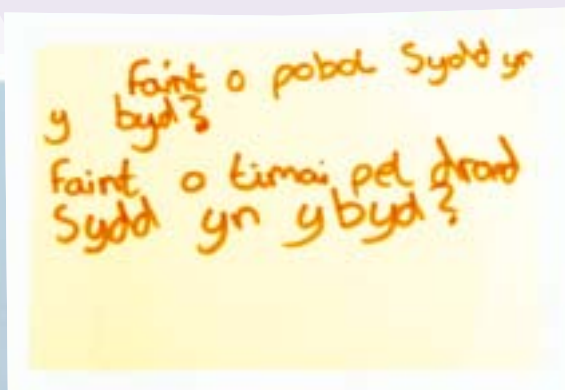 Faint o pobol Sydd yr
y byd?
Faint o timai pel droed
Sydd yn y byd?